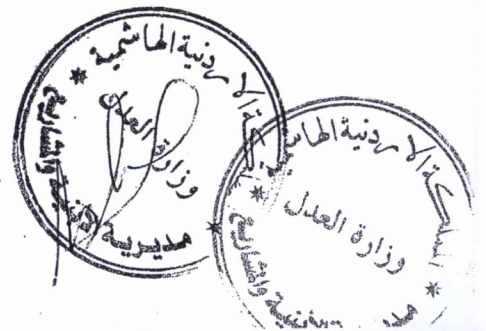 المملكة الاردنية الهاشمية
وزارة العدل
مديرية الابنية والمشاريع
المملكة الاردنية الهاشمية
وزارة العدل
والمشاريع